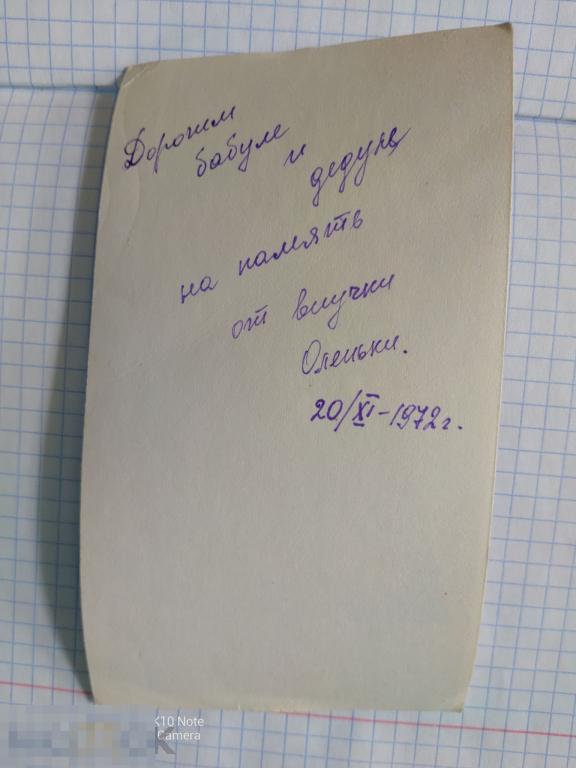 Дорогим
бабуле и дедуне
на память
от внучки
Оленьки.
20/XI-1972г.
K10 Note
Camera